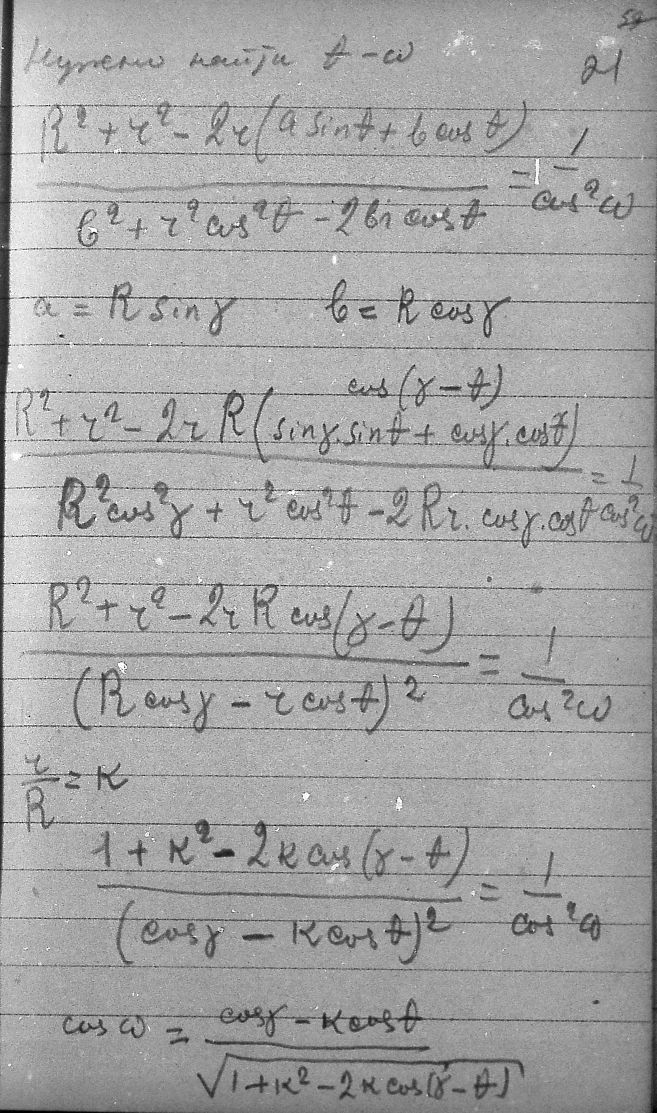 Нужно найти t - ω
21
R² + r² - 2r(a sin t + b cos t) / b² + r² cos² t - 2br cos t = 1 / cos² ω
a = R sin γ b = R cos γ
cos(γ - t)
R² + r² - 2rR(sin γ · sin t + cos γ · cos t) / R² cos² γ + r² cos² t - 2Rr · cos γ · cos t = 1 / cos² ω
R² + r² - 2rR cos(γ - t) / (R cos γ - r cos t)² = 1 / cos² ω
r / R = K
1 + K² - 2K cos(γ - t) / (cos γ - K cos t)² = 1 / cos² ω
cos ω = cos γ - K cos t / √(1 + K² - 2K cos(γ - t))